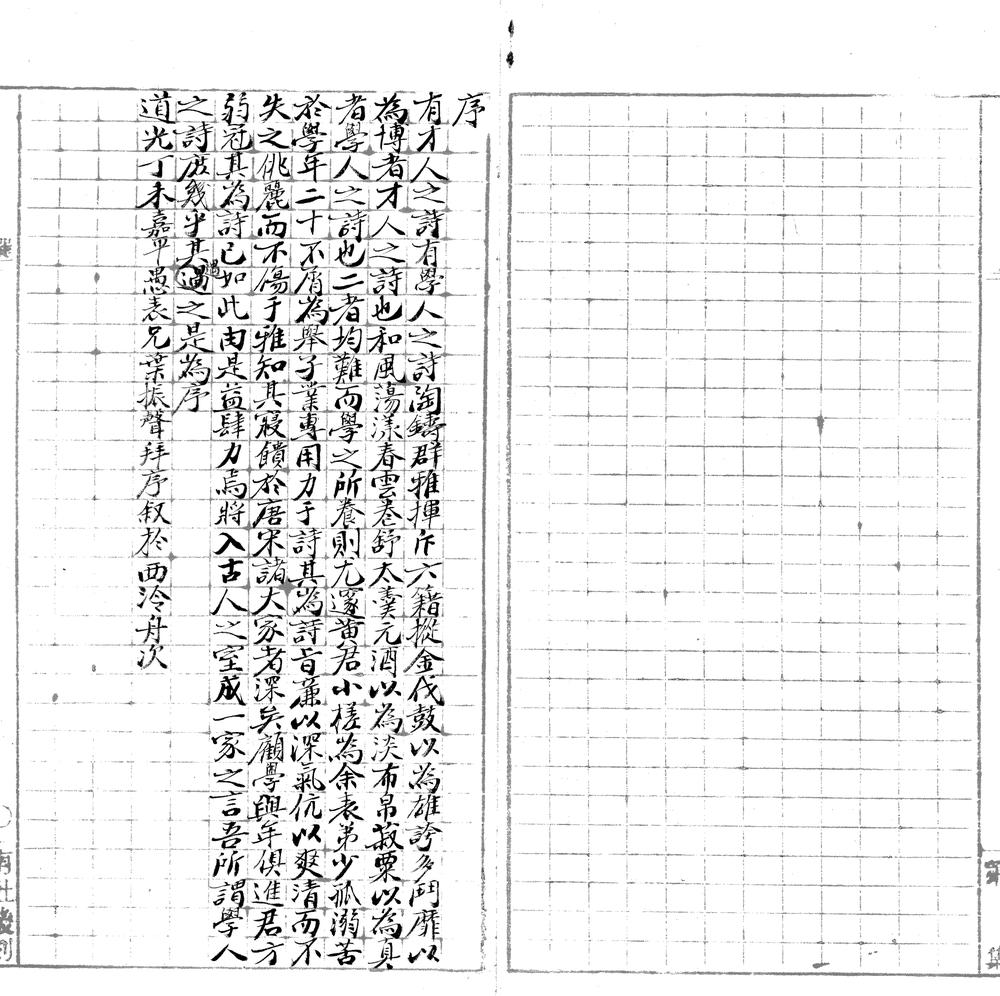 序
有才人之詩有學人之詩陶鑄群雅揮斥六籍摐金伐鼓以為雄誇多鬥靡以
為博者才人之詩也和風蕩漾春雲卷舒太羹元酒以為淡布帛菽粟以為真
者學人之詩也二者均難而學之所養則尤邃黃君小槎為余表弟少孤溺苦
於學年二十不屑為舉子業專用力于詩其為詩旨蓲以深氣伉以爽清而不
失之佻麗而不傷于雅知其寢饋於唐宋諸大家者深矣顧學與年俱進君方
弱冠其為詩已如此由是益肆力焉將入古人之室成一家之言吾所謂學人
之詩庶幾乎其遇之是為序
道光丁未嘉平愚表兄葉振聲拜序叙於西泠舟次